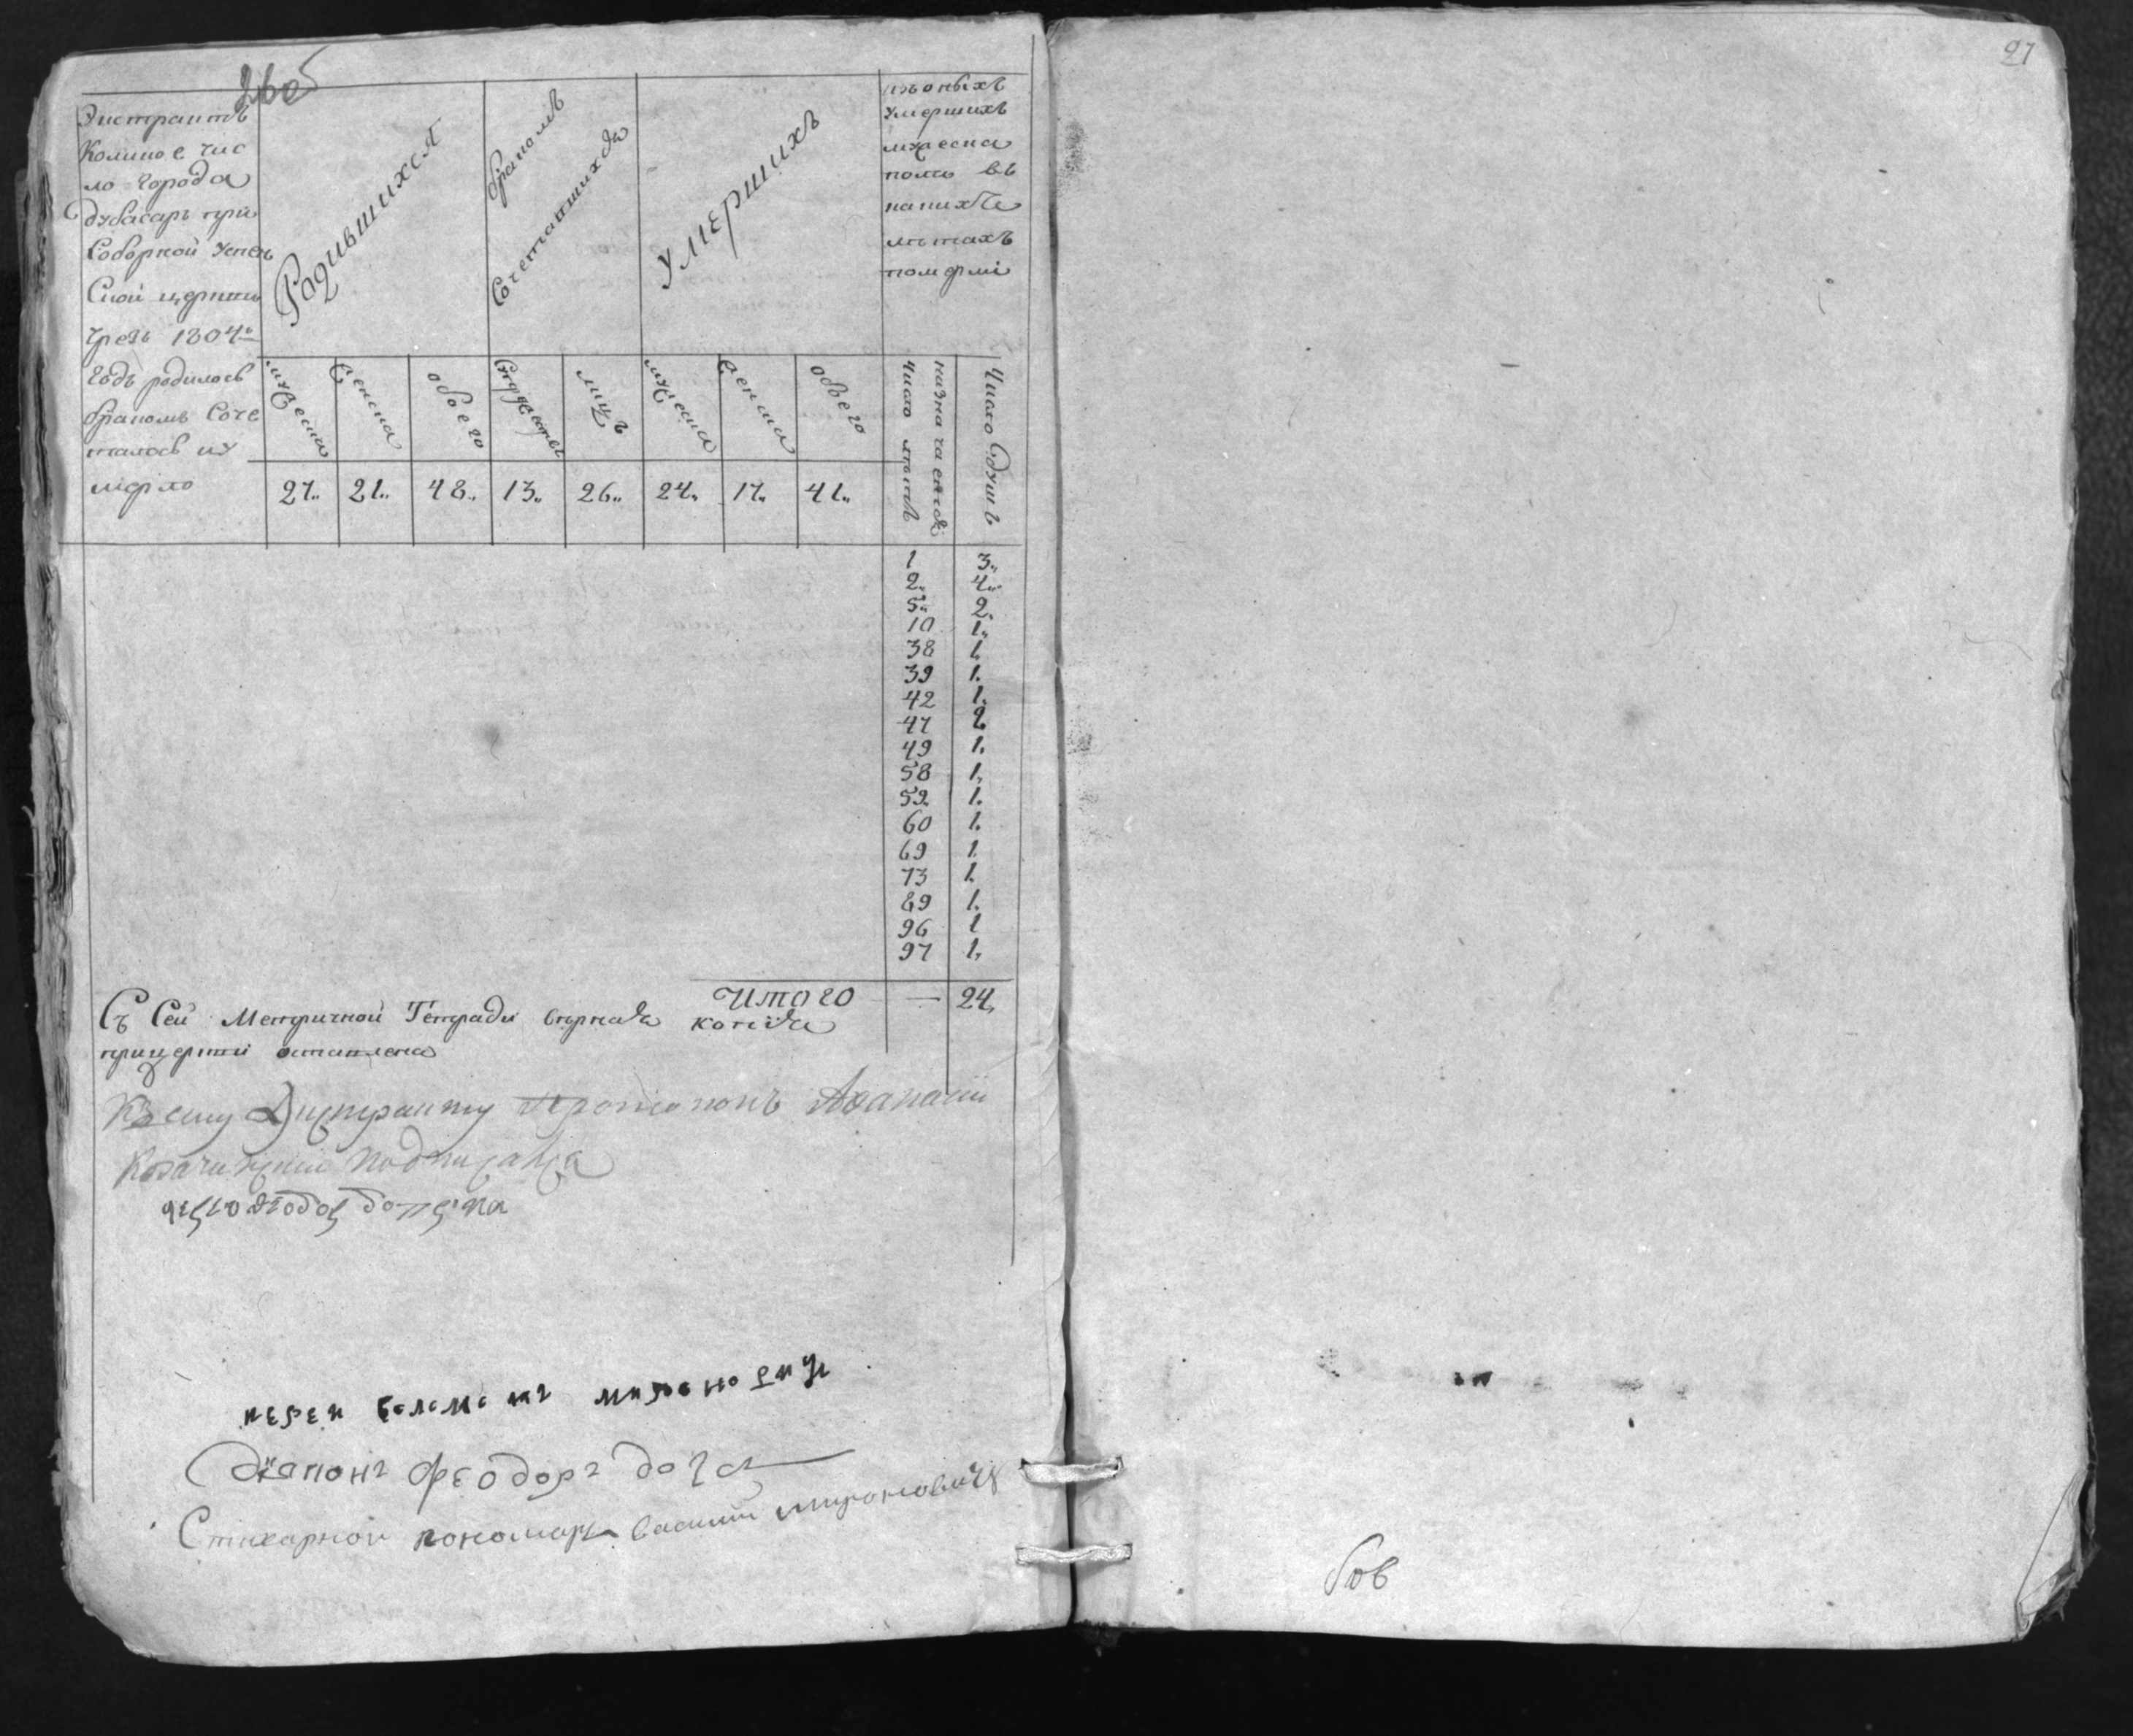 26об
Экстрактъ
Коликое чис
ло города
дубасаръ при
Соборной Успен
Ской церкви
Чрезъ 1804й
годъ родилось
бракомъ Соче
талось и у
мерло
Родившихся
бракомъ
Сочетавшихся
Умершихъ
изъ оныхъ
Умершихъ
мужеска
пола въ
какихъ
летахъ
померли
мужеска
женска
обоего
Супружествъ
лицъ
мужеска
женска
обоего
Число летъ
назначается
Число душъ
27 21 48 13 26 24 17 41
1 3
2 4
5 2
10 1
38 1
39 1
42 1
47 2
49 1
58 1
59 1
60 1
69 1
73 1
89 1
96 1
97 1
Итого — 24
Съ Сей Метричной Тетради верная копия
при церкви оставлена
Къ сему Экстракту Протопопъ Афанасий
подписался
иерей
Диаконъ Феодоръ
Стихарной пономарь Василий Миронович
27